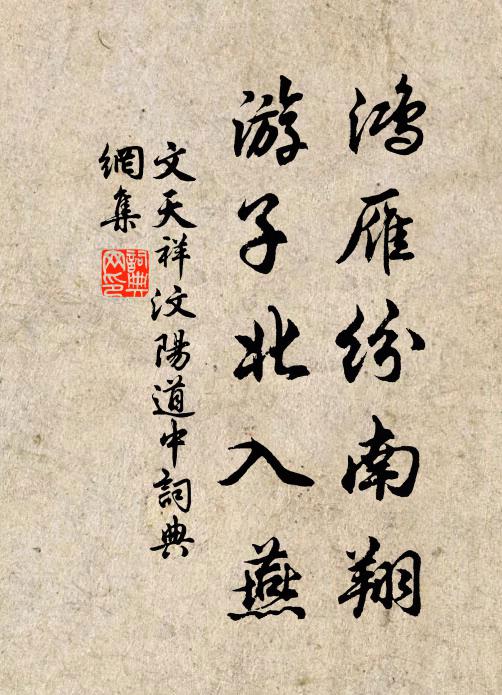 鴻雁纷南翔
游子北入燕
文天祥汶陽道中詞典
網集
詞典
网印